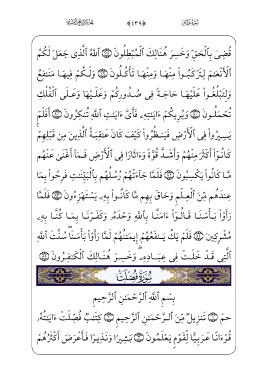 قُضِىَ بِٱلْحَقِّ وَخَسِرَ هُنَالِكَ ٱلْمُبْطِلُونَ ۝ ٱللَّهُ ٱلَّذِى جَعَلَ لَكُمُ
ٱلْأَنْعَٰمَ لِتَرْكَبُوا۟ مِنْهَا وَمِنْهَا تَأْكُلُونَ ۝ وَلَكُمْ فِيهَا مَنَٰفِعُ
وَلِتَبْلُغُوا۟ عَلَيْهَا حَاجَةً فِى صُدُورِكُمْ وَعَلَيْهَا وَعَلَى ٱلْفُلْكِ
تُحْمَلُونَ ۝ وَيُرِيكُمْ ءَايَٰتِهِۦ فَأَىَّ ءَايَٰتِ ٱللَّهِ تُنكِرُونَ ۝ أَفَلَمْ
يَسِيرُوا۟ فِى ٱلْأَرْضِ فَيَنظُرُوا۟ كَيْفَ كَانَ عَٰقِبَةُ ٱلَّذِينَ مِن قَبْلِهِمْ
كَانُوٓا۟ أَكْثَرَ مِنْهُمْ وَأَشَدَّ قُوَّةً وَءَاثَارًا فِى ٱلْأَرْضِ فَمَآ أَغْنَىٰ عَنْهُم
مَّا كَانُوا۟ يَكْسِبُونَ ۝ فَلَمَّا جَآءَتْهُمْ رُسُلُهُم بِٱلْبَيِّنَٰتِ فَرِحُوا۟ بِمَا
عِندَهُم مِّنَ ٱلْعِلْمِ وَحَاقَ بِهِم مَّا كَانُوا۟ بِهِۦ يَسْتَهْزِءُونَ ۝ فَلَمَّا
رَأَوْا۟ بَأْسَنَا قَالُوٓا۟ ءَامَنَّا بِٱللَّهِ وَحْدَهُۥ وَكَفَرْنَا بِمَا كُنَّا بِهِۦ
مُشْرِكِينَ ۝ فَلَمْ يَكُ يَنفَعُهُمْ إِيمَٰنُهُمْ لَمَّا رَأَوْا۟ بَأْسَنَا سُنَّتَ ٱللَّهِ
ٱلَّتِى قَدْ خَلَتْ فِى عِبَادِهِۦ وَخَسِرَ هُنَالِكَ ٱلْكَٰفِرُونَ ۝
سُورَةُ فُصِّلَتْ
بِسْمِ ٱللَّهِ ٱلرَّحْمَٰنِ ٱلرَّحِيمِ
حمٓ ۝ تَنزِيلٌ مِّنَ ٱلرَّحْمَٰنِ ٱلرَّحِيمِ ۝ كِتَٰبٌ فُصِّلَتْ ءَايَٰتُهُۥ
قُرْءَانًا عَرَبِيًّا لِّقَوْمٍ يَعْلَمُونَ ۝ بَشِيرًا وَنَذِيرًا فَأَعْرَضَ أَكْثَرُهُمْ